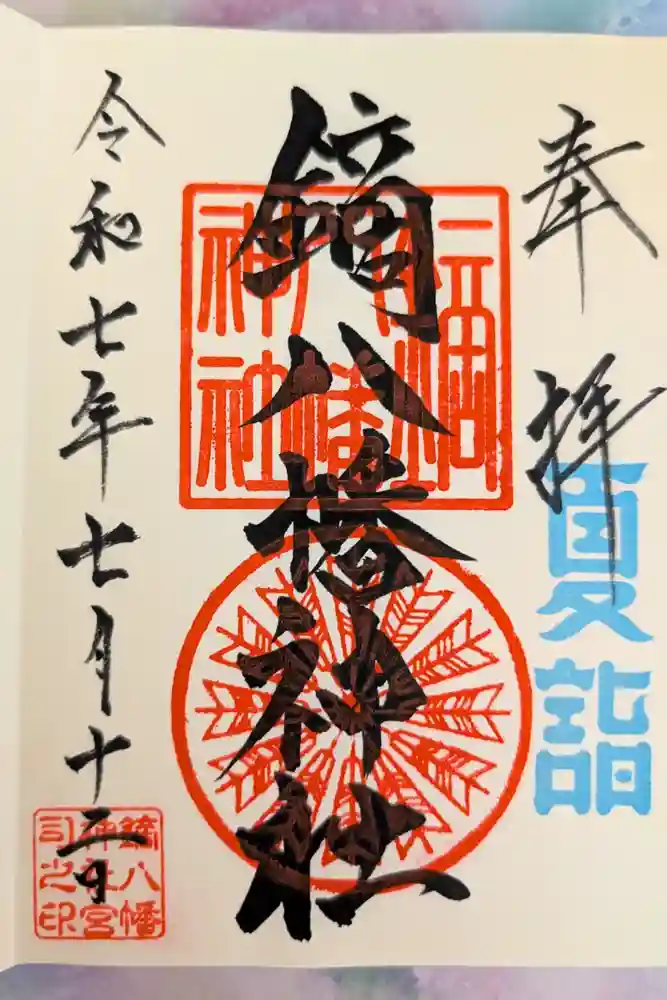 奉拝
夏詣
鏑八幡神社
八幡
神社
令和七年七月十二日
鏑八幡
神社宮
司之印